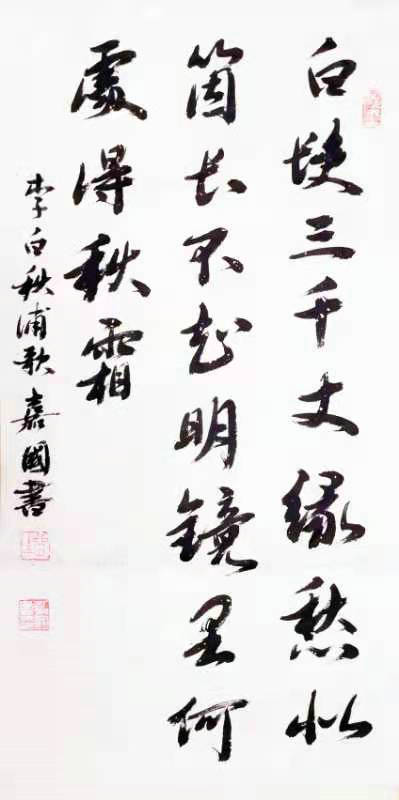 白髮三千丈緣愁似
箇長不知明鏡里何
處得秋霜
李白秋浦歌 嘉國書